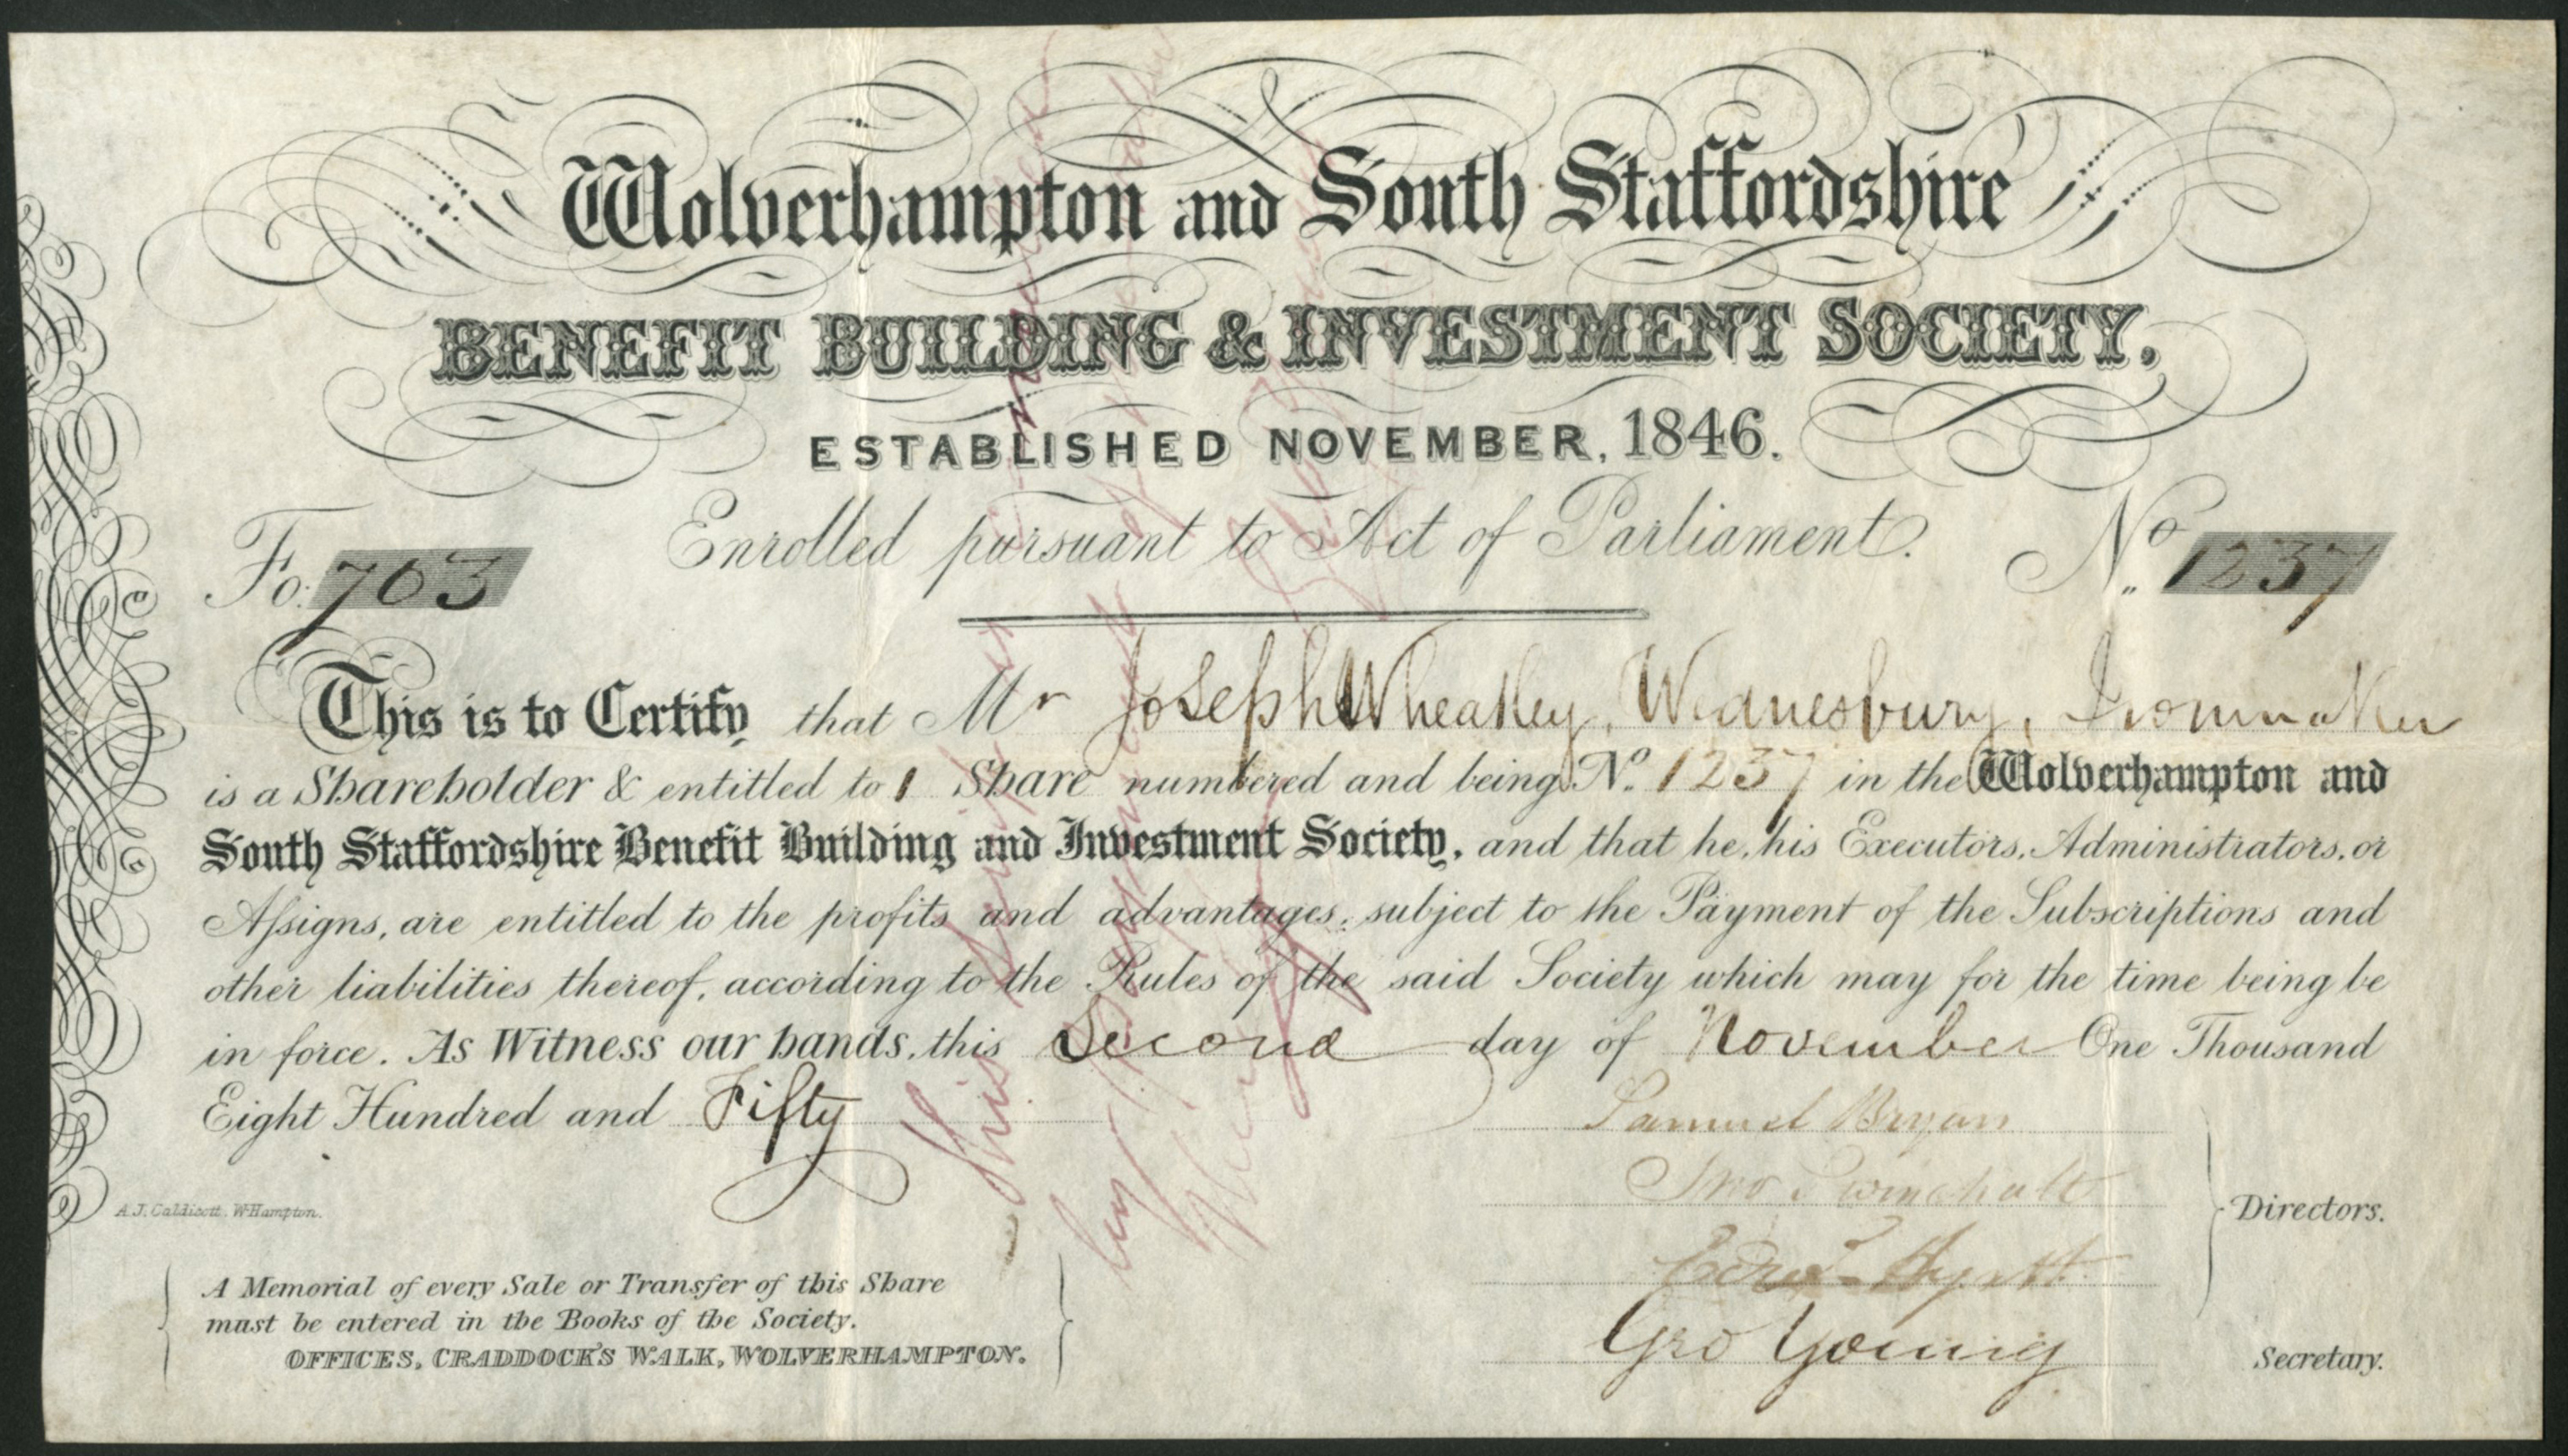 Wolverhampton and South Staffordshire
BENEFIT BUILDING & INVESTMENT SOCIETY.
ESTABLISHED NOVEMBER, 1846.
Enrolled pursuant to Act of Parliament.
Fo: 763
No. 1237
This is to Certify that Mr Joseph Wheatley, Wednesbury, Ironmaker
is a Shareholder & entitled to 1 Share numbered and being No. 1237 in the Wolverhampton and
South Staffordshire Benefit Building and Investment Society, and that he, his Executors, Administrators, or
Assigns, are entitled to the profits and advantages, subject to the Payment of the Subscriptions and
other liabilities thereof, according to the Rules of the said Society which may for the time being be
in force. As Witness our hands, this Second day of November One Thousand
Eight Hundred and Fifty
Samuel Bryan
Jno
Directors.
Geo Young
Secretary.
A.J. Caldicott, W-Hampton.
A Memorial of every Sale or Transfer of this Share
must be entered in the Books of the Society.
OFFICES, CRADDOCK'S WALK, WOLVERHAMPTON.